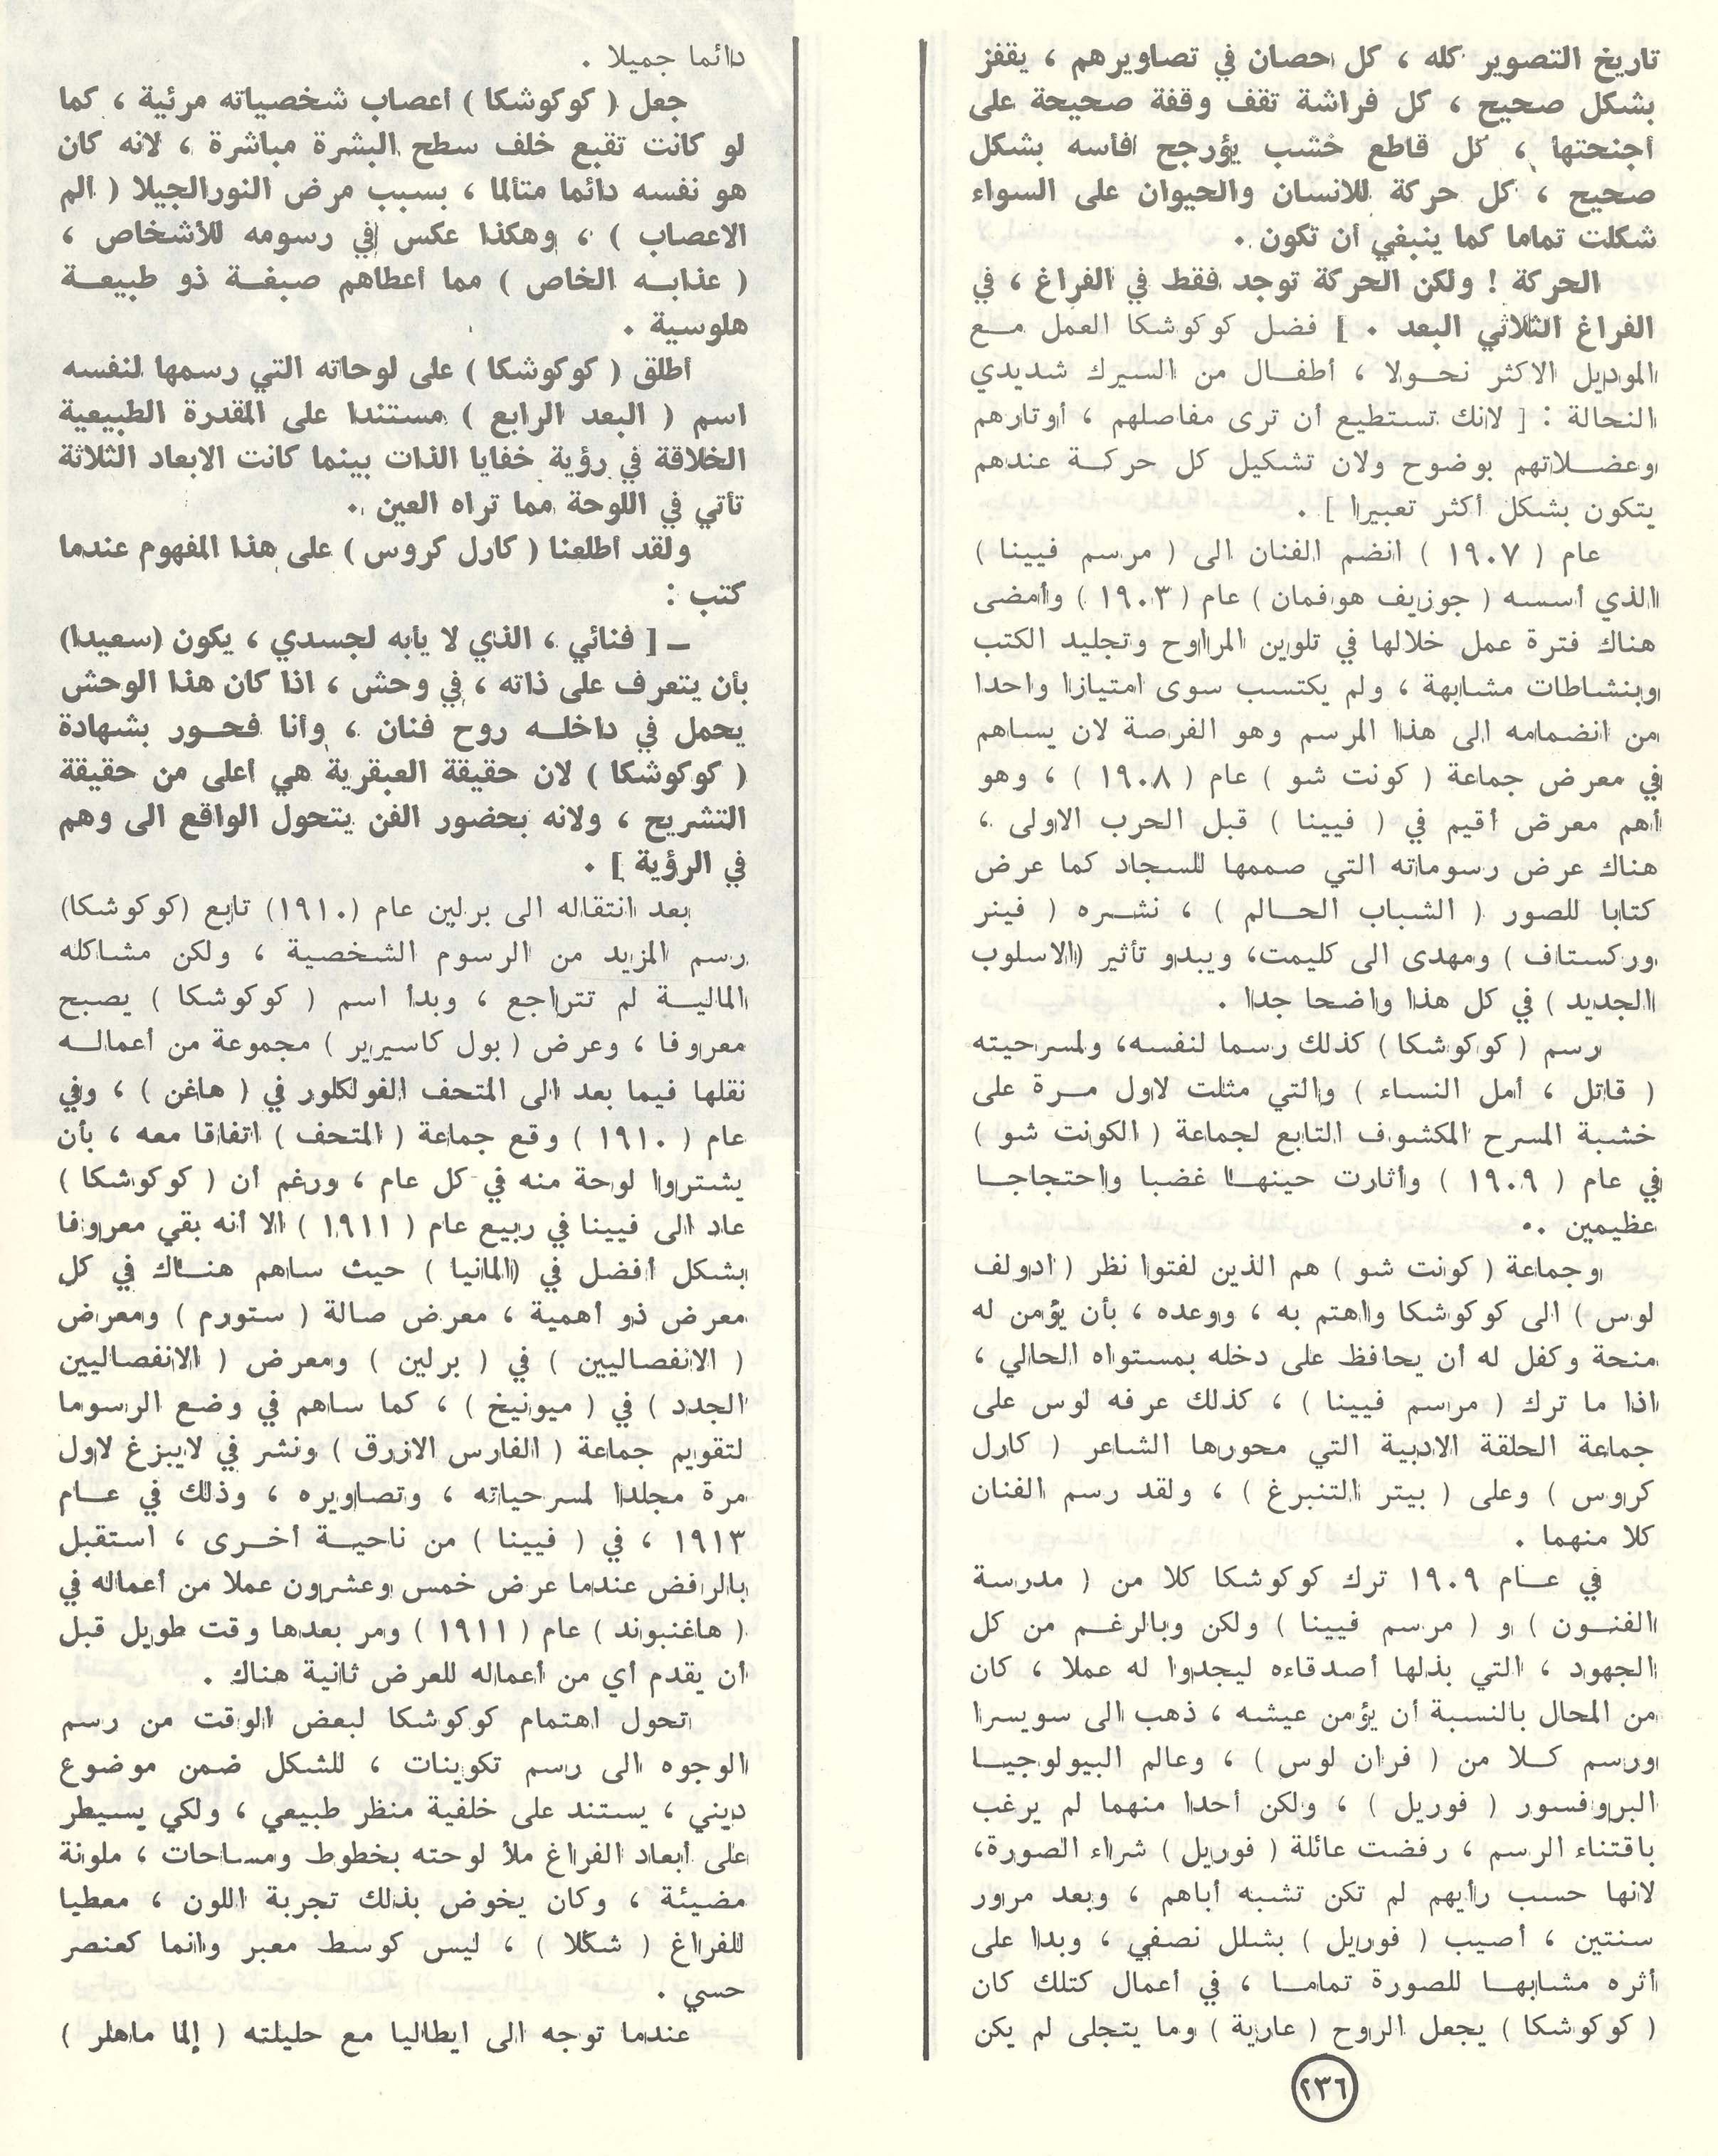 تاريخ التصوير كله ، كل حصان في تصاويرهم ، يقفز
بشكل صحيح ، كل فراشة تقف وقفة صحيحة على
أجنحتها ، كل قاطع خشب يؤرجح فأسه بشكل
صحيح ، كل حركة للانسان والحيوان على السواء
شكلت تماما كما ينبغي أن تكون .
الحركة ! ولكن الحركة توجد فقط في الفراغ ، في
الفراغ الثلاثي البعد . ] فضل كوكوشكا العمل مع
الموديل الاكثر نحولا ، أطفال من السيرك شديدي
النحالة : [ لانك تستطيع أن ترى مفاصلهم ، أوتارهم
وعضلاتهم بوضوح ولان تشكيل كل حركة عندهم
يتكون بشكل أكثر تعبيرا ] .
عام ( ١٩٠٧ ) انضم الفنان الى ( مرسم فيينا )
الذي أسسه ( جوزيف هوفمان ) عام ( ١٩٠٣ ) وأمضى
هناك فترة عمل خلالها في تلوين المراوح وتجليد الكتب
وبنشاطات مشابهة ، ولم يكتسب سوى امتيازا واحدا
من انضمامه الى هذا المرسم وهو الفرصة لان يساهم
في معرض جماعة ( كونت شو ) عام ( ١٩٠٨ ) ، وهو
أهم معرض أقيم في ( فيينا ) قبل الحرب الاولى ،
هناك عرض رسوماته التي صممها للسجاد كما عرض
كتابا للصور ( الشباب الحالم ) ، نشره ( فينر
وركستاف ) ومهدى الى كليمت، ويبدو تأثير (الاسلوب
الجديد ) في كل هذا واضحا جدا .
رسم ( كوكوشكا ) كذلك رسما لنفسه، ولمسرحيته
( قاتل ، أمل النساء ) والتي مثلت لاول مرة على
خشبة المسرح المكشوف التابع لجماعة ( الكونت شو )
في عام ( ١٩٠٩ ) وأثارت حينها غضبا واحتجاجا
عظيمين .
وجماعة ( كونت شو ) هم الذين لفتوا نظر ( ادولف
لوس ) الى كوكوشكا واهتم به ، ووعده ، بأن يؤمن له
منحة وكفل له أن يحافظ على دخله بمستواه الحالي ،
اذا ما ترك ( مرسم فيينا ) ، كذلك عرفه لوس على
جماعة الحلقة الادبية التي محورها الشاعر ( كارل
كروس ) وعلى ( بيتر التنبرغ ) ، ولقد رسم الفنان
كلا منهما .
في عام ١٩٠٩ ترك كوكوشكا كلا من ( مدرسة
الفنون ) و ( مرسم فيينا ) ولكن وبالرغم من كل
الجهود ، التي بذلها أصدقاءه ليجدوا له عملا ، كان
من المحال بالنسبة أن يؤمن عيشه ، ذهب الى سويسرا
ورسم كلا من ( فران لوس ) ، وعالم البيولوجيا
البروفسور ( فوريل ) ، ولكن أحدا منهما لم يرغب
باقتناء الرسم ، رفضت عائلة ( فوريل ) شراء الصورة،
لانها حسب رأيهم لم تكن تشبه أباهم ، وبعد مرور
سنتين ، أصيب ( فوريل ) بشلل نصفي ، وبدا على
أثره مشابها للصورة تماما ، في أعمال كتلك كان
( كوكوشكا ) يجعل الروح ( عارية ) وما يتجلى لم يكن
دائما جميلا .
جعل ( كوكوشكا ) أعصاب شخصياته مرئية ، كما
لو كانت تقبع خلف سطح البشرة مباشرة ، لانه كان
هو نفسه دائما متألما ، بسبب مرض النورالجيلا ( ألم
الاعصاب ) ، وهكذا عكس في رسومه للأشخاص ،
( عذابه الخاص ) مما أعطاهم صبغة ذو طبيعة
هلوسية .
أطلق ( كوكوشكا ) على لوحاته التي رسمها لنفسه
اسم ( البعد الرابع ) مستندا على المقدرة الطبيعية
الخلاقة في رؤية خفايا الذات بينما كانت الابعاد الثلاثة
تأتي في اللوحة مما تراه العين .
ولقد أطلعنا ( كارل كروس ) على هذا المفهوم عندما
كتب :
ـ [ فنائي ، الذي لا يأبه لجسدي ، يكون (سعيدا)
بأن يتعرف على ذاته ، في وحش ، اذا كان هذا الوحش
يحمل في داخله روح فنان ، وأنا فخور بشهادة
( كوكوشكا ) لان حقيقة العبقرية هي أعلى من حقيقة
التشريح ، ولانه بحضور الفن يتحول الواقع الى وهم
في الرؤية ] .
بعد انتقاله الى برلين عام (١٩١٠) تابع (كوكوشكا)
رسم المزيد من الرسوم الشخصية ، ولكن مشاكله
المالية لم تتراجع ، وبدأ اسم ( كوكوشكا ) يصبح
معروفا ، وعرض ( بول كاسيرير ) مجموعة من أعماله
نقلها فيما بعد الى المتحف الفولكلور في ( هاغن ) ، وفي
عام ( ١٩١٠ ) وقع جماعة ( المتحف ) اتفاقا معه ، بأن
يشتروا لوحة منه في كل عام ، ورغم أن ( كوكوشكا )
عاد الى فيينا في ربيع عام ( ١٩١١ ) الا أنه بقي معروفا
بشكل أفضل في (المانيا ) حيث ساهم هناك في كل
معرض ذو أهمية ، معرض صالة ( ستورم ) ومعرض
( الانفصاليين ) في ( برلين ) ومعرض ( الانفصاليين
الجدد ) في ( ميونيخ ) ، كما ساهم في وضع الرسوما
لتقويم جماعة ( الفارس الازرق ) ونشر في لايبزغ لاول
مرة مجلدا لمسرحياته ، وتصاويره ، وذلك في عام
١٩١٣ ، في ( فيينا ) من ناحية أخرى ، استقبل
بالرفض عندما عرض خمس وعشرون عملا من أعماله في
( هاغنبوند ) عام ( ١٩١١ ) ومر بعدها وقت طويل قبل
أن يقدم أي من أعماله للعرض ثانية هناك .
تحول اهتمام كوكوشكا لبعض الوقت من رسم
الوجوه الى رسم تكوينات ، للشكل ضمن موضوع
ديني ، يستند على خلفية منظر طبيعي ، ولكي يسيطر
على أبعاد الفراغ ملأ لوحته بخطوط ومساحات ، ملونة
مضيئة ، وكان يخوض بذلك تجربة اللون ، معطيا
للفراغ ( شكلا ) ، ليس كوسط معبر وانما كعنصر
حسي .
عندما توجه الى ايطاليا مع حليلته ( إلما ماهلر )
٢٣٦